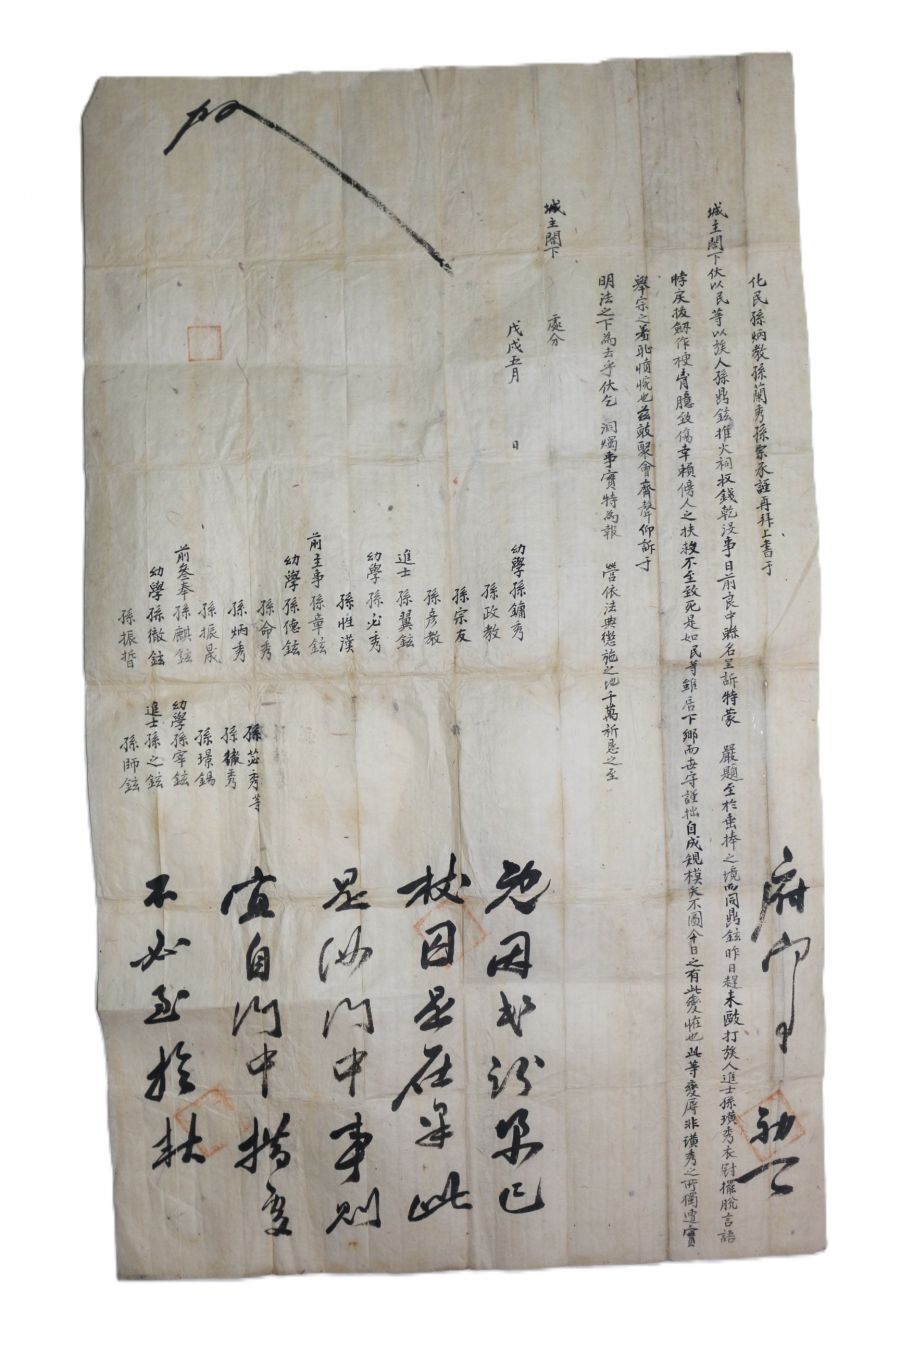 化民孫炳教孫蘭秀孫宗承謹再拜上書于
城主閤下伏以民等以族人孫鼎鉉推火祠收錢乾沒事日前良中聯名呈訴特蒙 嚴題至於垂捧之境而同鼎鉉昨日趕來毆打族人進士孫璜秀衣對擺脫言語
悖戾拔劒作梗胷臆致傷幸賴傍人之扶救不至致死是如民等雖居下鄉而世守謹拙自成規模矣不圖今日之有此變恠也此等變辱非璜秀之所獨遭實
擧宗之羞恥憤慨也玆敢聚會齊聲仰訴于
明法之下為去乎伏乞 洞燭事實特為報 營依法典懲施之地千萬祈恳之至
處分
城主閤下
戊戌五月 日
幼學孫鏞秀
孫政教
孫宗友
孫彥教
進士 孫翼鉉
幼學 孫必秀
孫性漢
前主事孫章鉉
幼學孫德鉉
孫命秀
孫炳秀
孫振晟
前參奉孫麒鉉
幼學孫徹鉉
孫振晢
孫苾秀等
孫徽秀
孫璟錫
幼學孫宰鉉
進士孫之鉉
孫師鉉
杖囚是在果此
是汝門中事則
宜自門中措處
不必至於杖